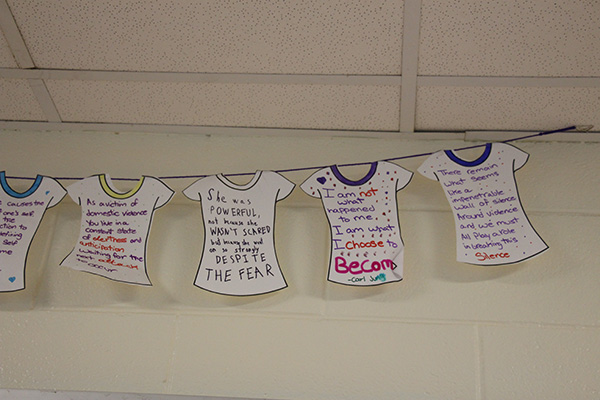 causes the
one's self
ction to
Self
me
As a victim of
domestic violence
You live in a
constant state
of alertness and
anticipation
waiting for the
next
to occur
She was
POWERFUL,
not because she
WASN'T SCARED
but because she
on so strongly
DESPITE
THE FEAR
I am not
what
happened
to me.
I am what
I choose to
Become
-Carl Jung
There remain
what seems
like a
impenetrable
wall of silence
Around violence
and we must
All play a role
in breaking this
Silence